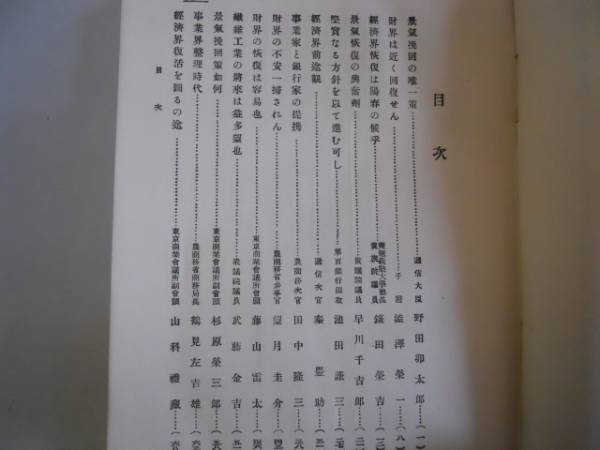 目次
景氣挽回の唯一策…………遞信大臣 野田卯太郎……(一)
財界は近く回復せん…………子爵 澁澤榮一……(八)
經濟界恢復は陽春の候乎…………慶應義塾大學塾長 貴族院議員 鎌田榮吉……(三)
景氣恢復の興奮劑…………貴族院議員 早川千吉郎……
堅實なる方針を以て進む可し…………第百銀行頭取 池田謙三……
經濟界前途觀…………遞信次官 秦豊助……
事業家と銀行家の提携…………農商務次官 田中隆三……
財界の不安一掃されん…………農商務省參事官 望月圭介……
財界の恢復は容易也…………東京商業會議所會頭 藤山雷太……
纎維工業の將來は益多望也…………衆議院議員 武藤金吉……
景氣挽回策如何…………東京商業會議所副會頭 杉原榮三郎……
事業界整理時代…………農商務省商務局長 鶴見左吉雄……
經濟界復活を圖るの途…………東京商業會議所副會頭 山科禮藏……
目次